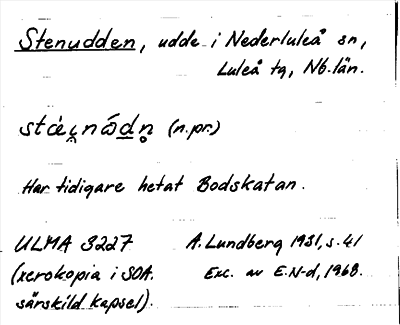 Stenudden, udde i Nederluleå sn,
Luleå tg, Nb. län.
(n.pr.)
Har tidigare hetat Bodskatan.
ULMA 3227 A. Lundberg 1931, s. 41
(xerokopia i SOA. Exc. av E.N-d, 1968.
särskild kapsel).